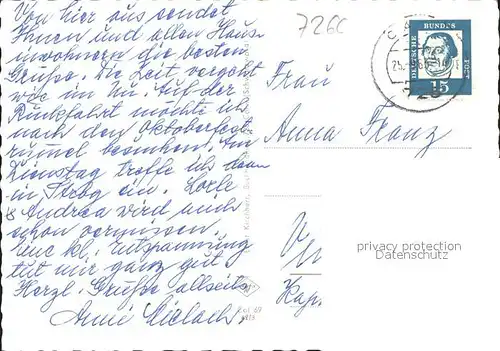 Von hier aus sendet
Ihnen und allen Haus-
bewohnern die besten
Grüße. Die Zeit vergeht
wie im Nu. Auf der
Rückfahrt möchte ich
noch den Oktoberfest
rummel besuchen. Am
Dienstag treffe ich dann
in ein.
& Andrea wird mich
schon vermissen.
Eine kl. Entspannung
tut mir ganz gut
Herzl. Grüße allseits
Anni
7260
DEUTSCHE BUNDESPOST
15
Frau
Anna Franz
privacy protection
Datenschutz